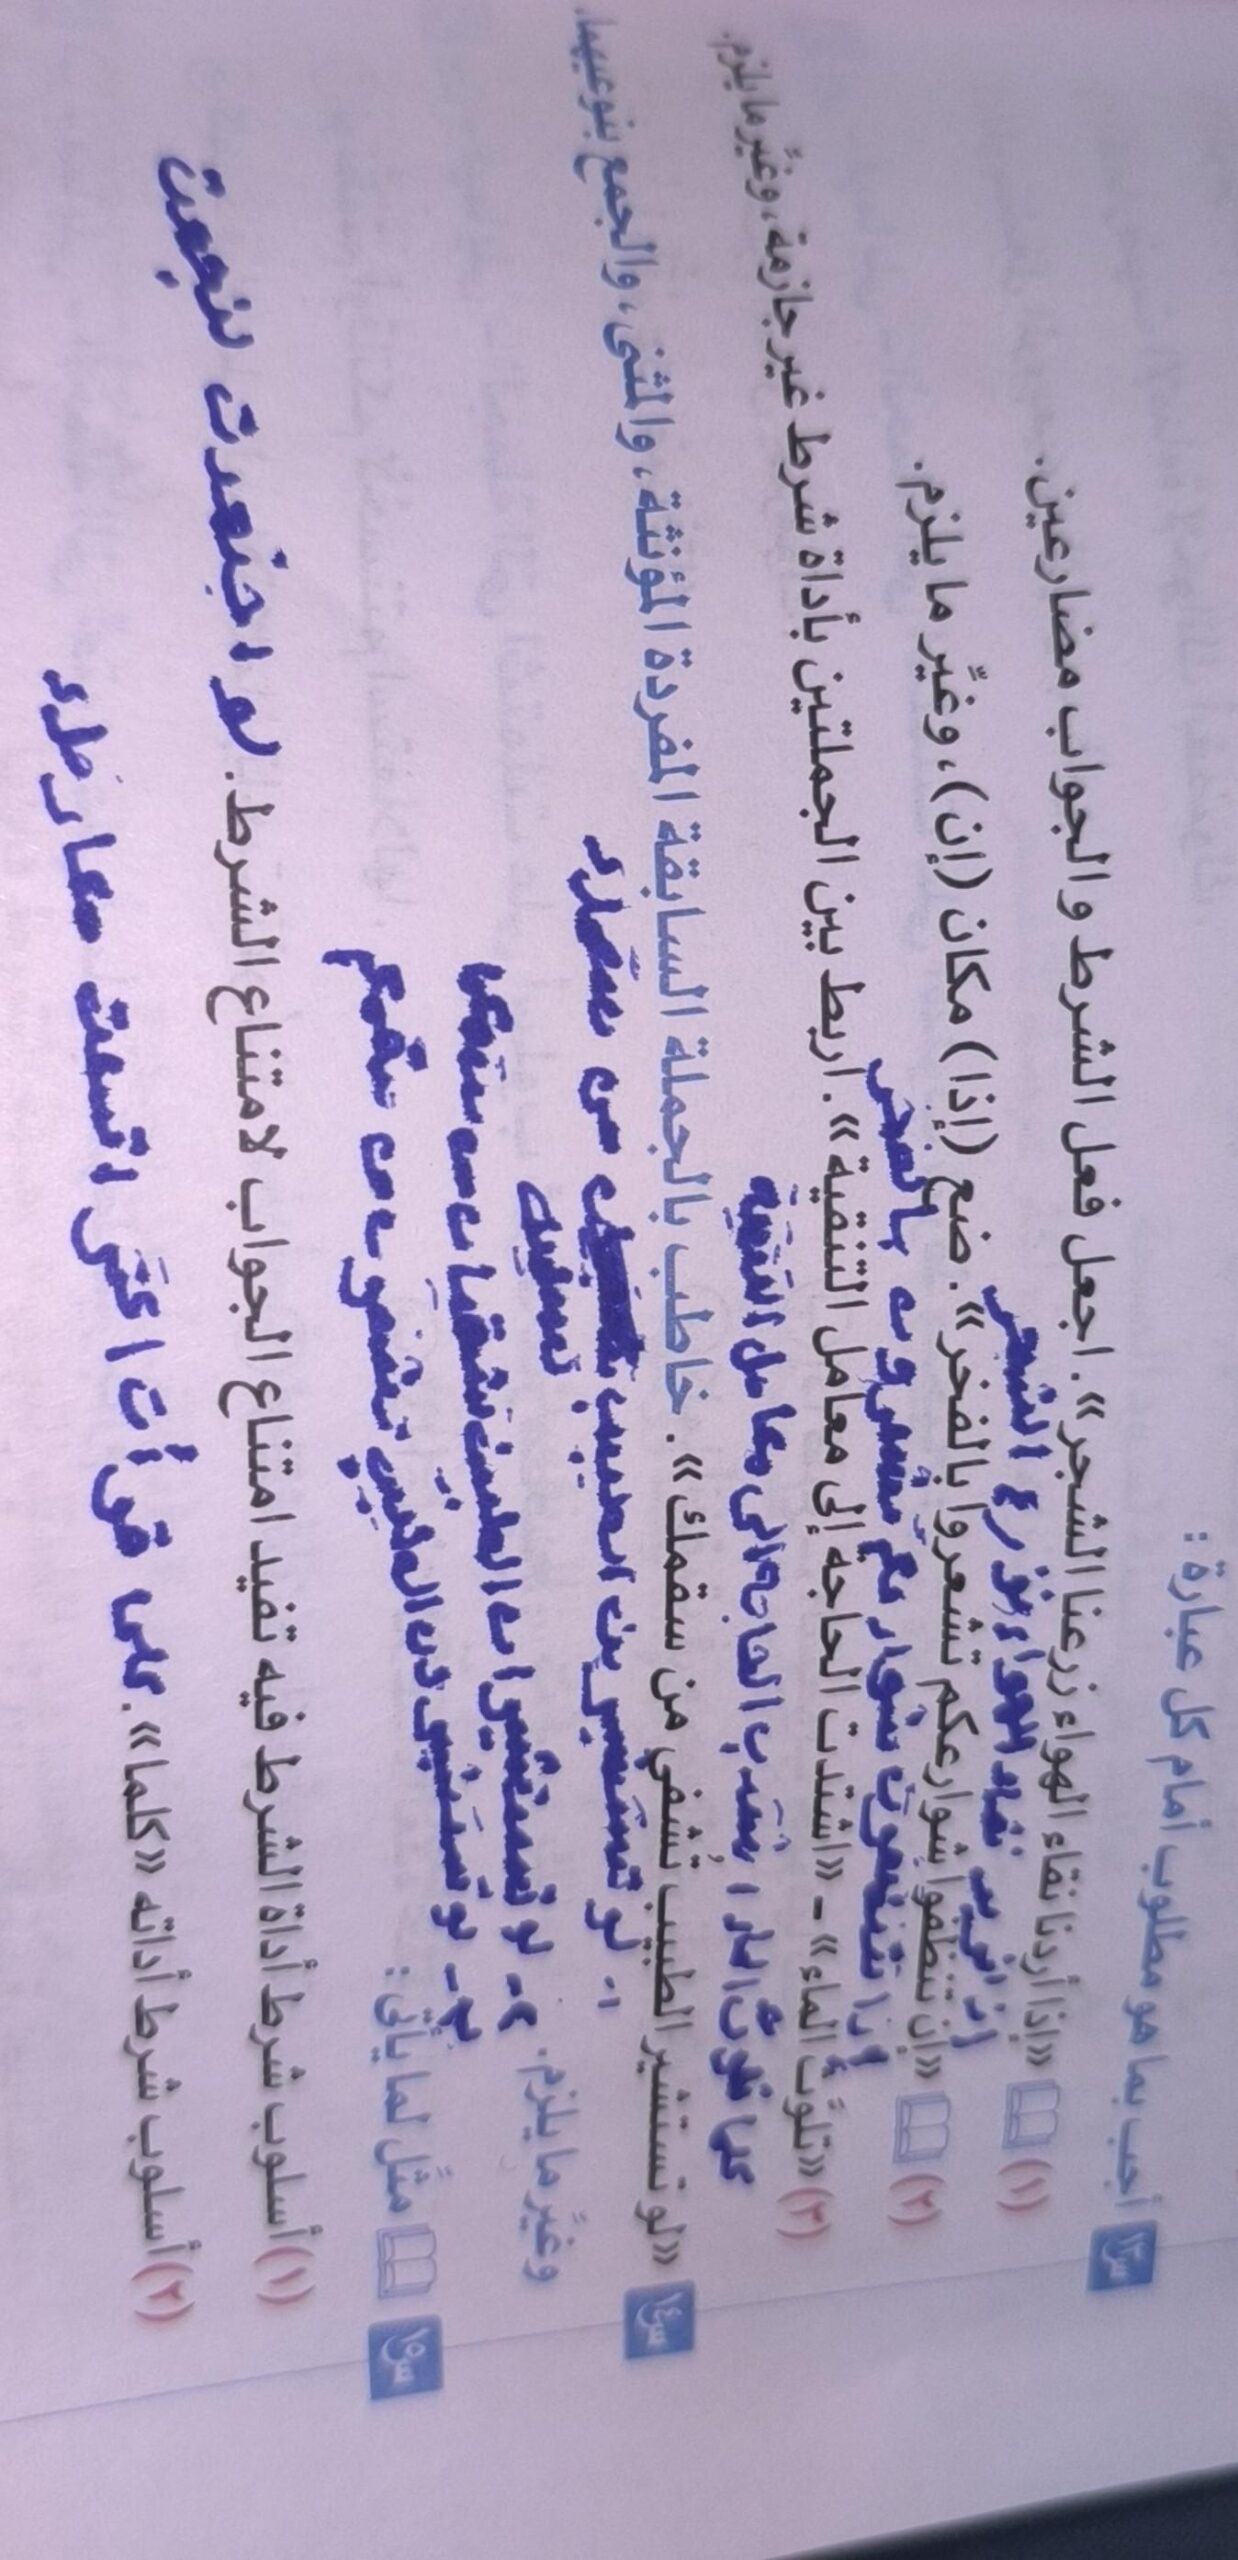 س١٣ أجب بما هو مطلوب أمام كل عبارة :
(١) «إذا أردنا نقاء الهواء زرعنا الشجر». اجعل فعل الشرط والجواب مضارعين.
نقاء الهواء نزرع الشجر
(٢) «إن تنظفوا شوارعكم تشعروا بالفخر». ضع (إذا) مكان (إن)، وغيِّر ما يلزم.
إذا تنظفون شوارعكم تشعرون بالفخر
(٣) «تلوَّث الماء» – «اشتدت الحاجة إلى معامل التنقية». اربط بين الجملتين بأداة شرط غير جازمة، وغيِّر ما يلزم.
كلما تلوث الماء اشتدت الحاجة إلى معامل التنقية
س١٤ «لو تستشير الطبيب تُشفى من سقمك». خاطب بالجملة السابقة المفردة المؤنثة، والمثنى، والجمع بنوعيهما،
١- لو تستشيرين الطبيب من سقمك
وغيِّر ما يلزم.
٢- لو تستشيران الطبيب تشفيان من سقمكما
٣- لو تستشيرون الطبيب تشفون من سقمكم
س١٥ مثِّل لما يأتي :
(١) أسلوب شرط أداة الشرط فيه تفيد امتناع الجواب لامتناع الشرط. لو اجتهدت لنجحت
(٢) أسلوب شرط أداته «كلما». كلما قرأت أكثر اتسعت معارفك